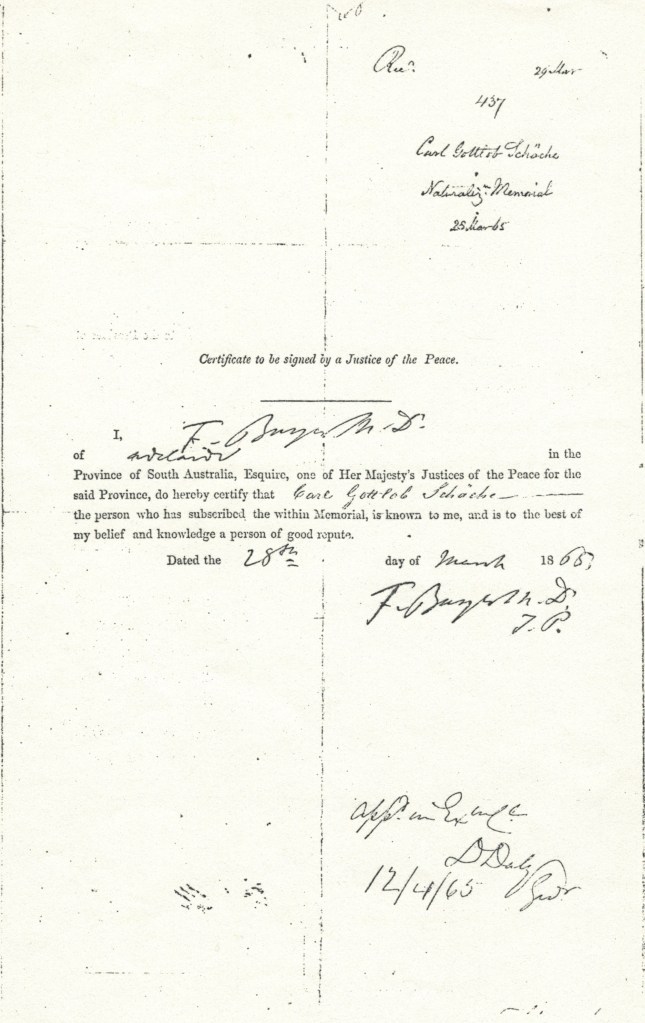 Rec.n 29 Mar
437
Carl Gottlob Schäche
Naturalizn. Memorial
28 Mar 65
Certificate to be signed by a Justice of the Peace.
I, F. M.D.
of Adelaide in the
Province of South Australia, Esquire, one of Her Majesty's Justices of the Peace for the
said Province, do hereby certify that Carl Gottlob Schäche
the person who has subscribed the within Memorial, is known to me, and is to the best of
my belief and knowledge a person of good repute.
Dated the 28th day of March 1865,
F. M.D.
J.P.
appd. in Ex
D Daly
12/4/65 Govr